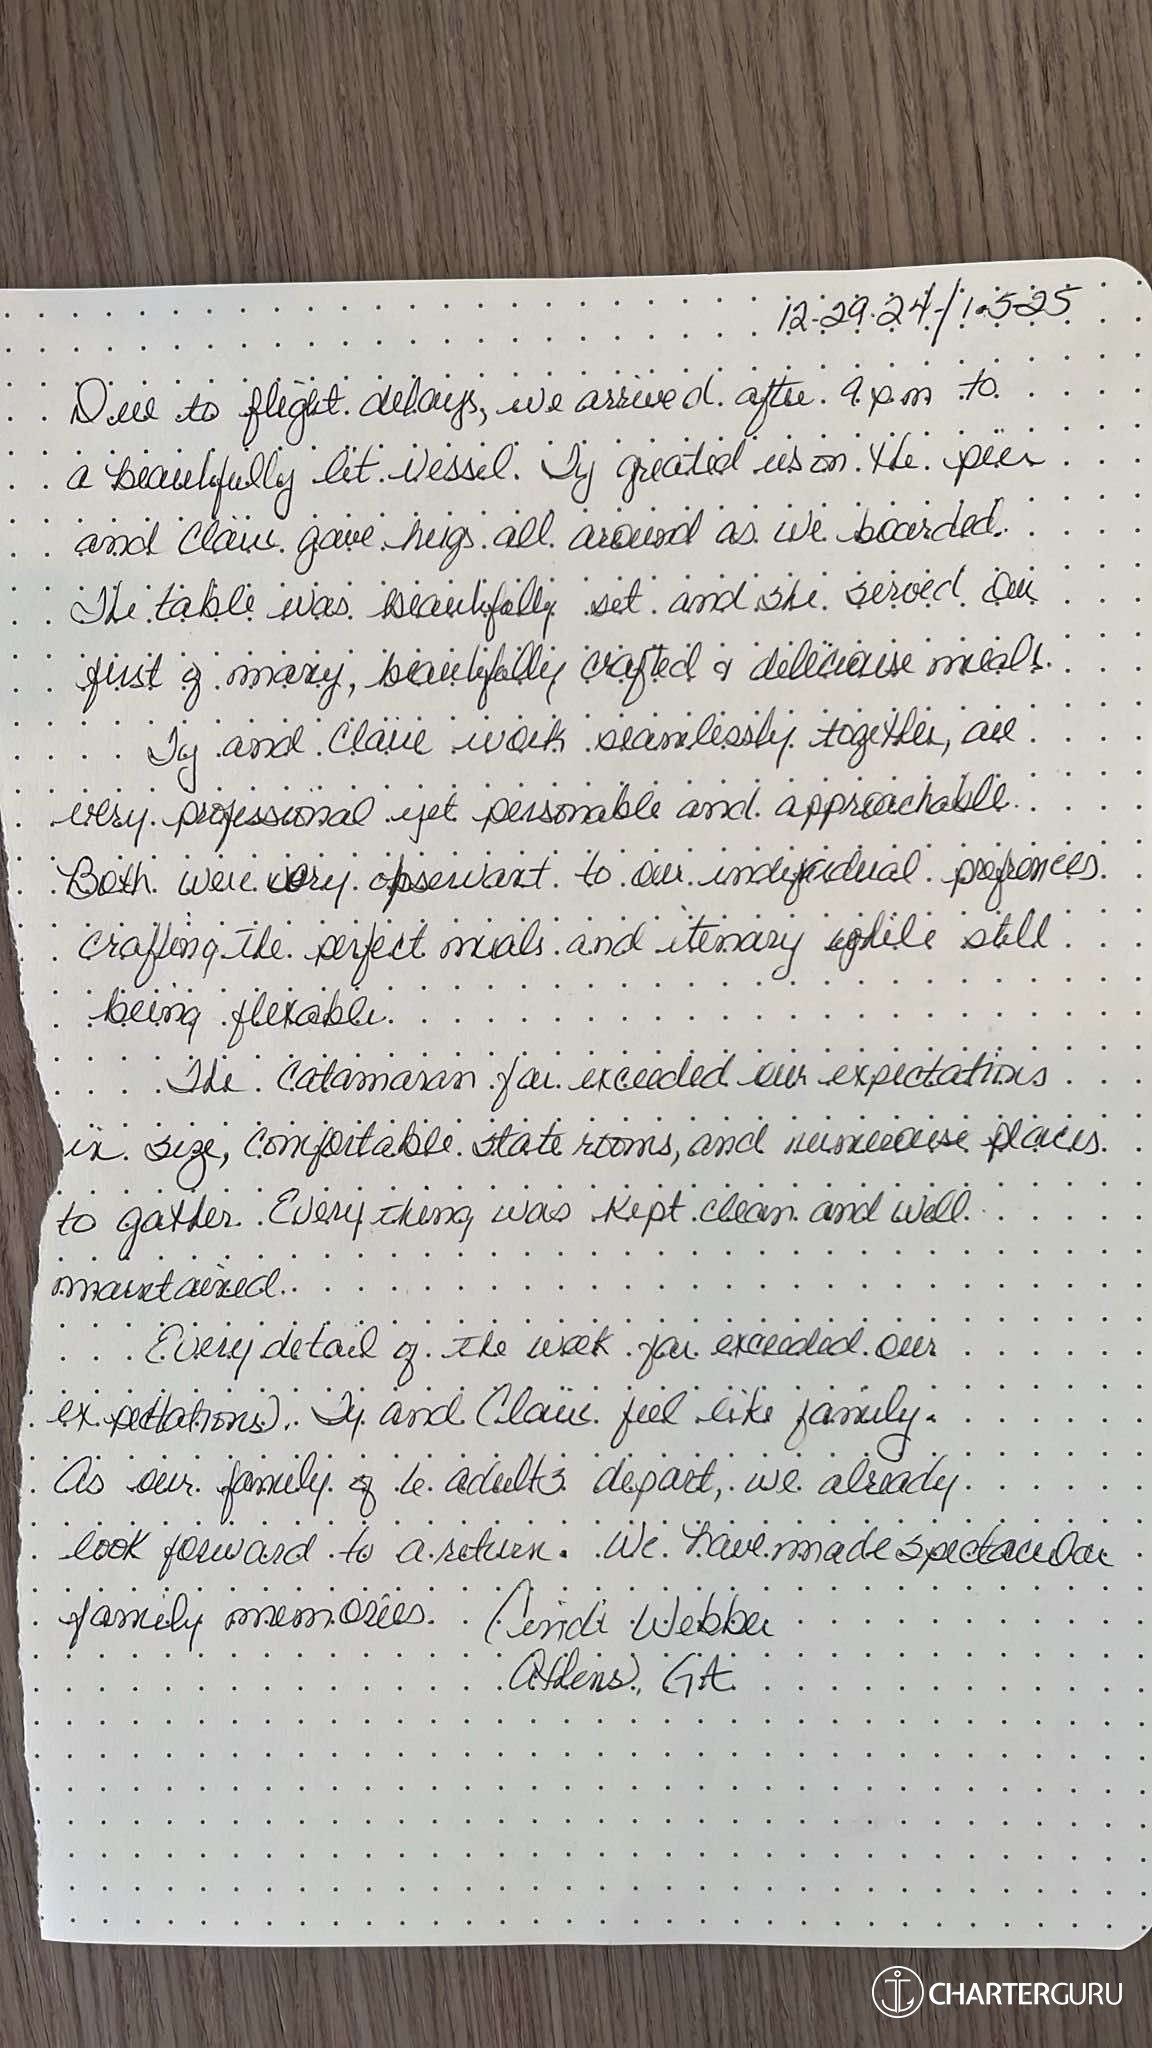 12-29-24/1-5-25
Due to flight delays, we arrived after 9 pm to
a beautifully lit vessel. Ty greated us on the pier
and Claire gave hugs all around as we boarded.
The table was beautifully set and she served our
first of many, beautifully crafted & deliciouse meals.
Ty and Claire work seamlessly together, are
very professional yet personable and approachable.
Both were very observant to our individual prefrences
crafting the perfect meals and itenary while still
being flexable.
The Catamaran far exceeded our expectations
in size, comfortable state rooms, and numerouse places
to gather. Everything was kept clean and well
maintained.
Every detail of the week far exceeded our
expectations. Ty and Claire feel like family.
As our family of 6 adults depart, we already
look forward to a return. We have made spectacular
family memories. Cindi Webber
Athens, GA
CHARTERGURU